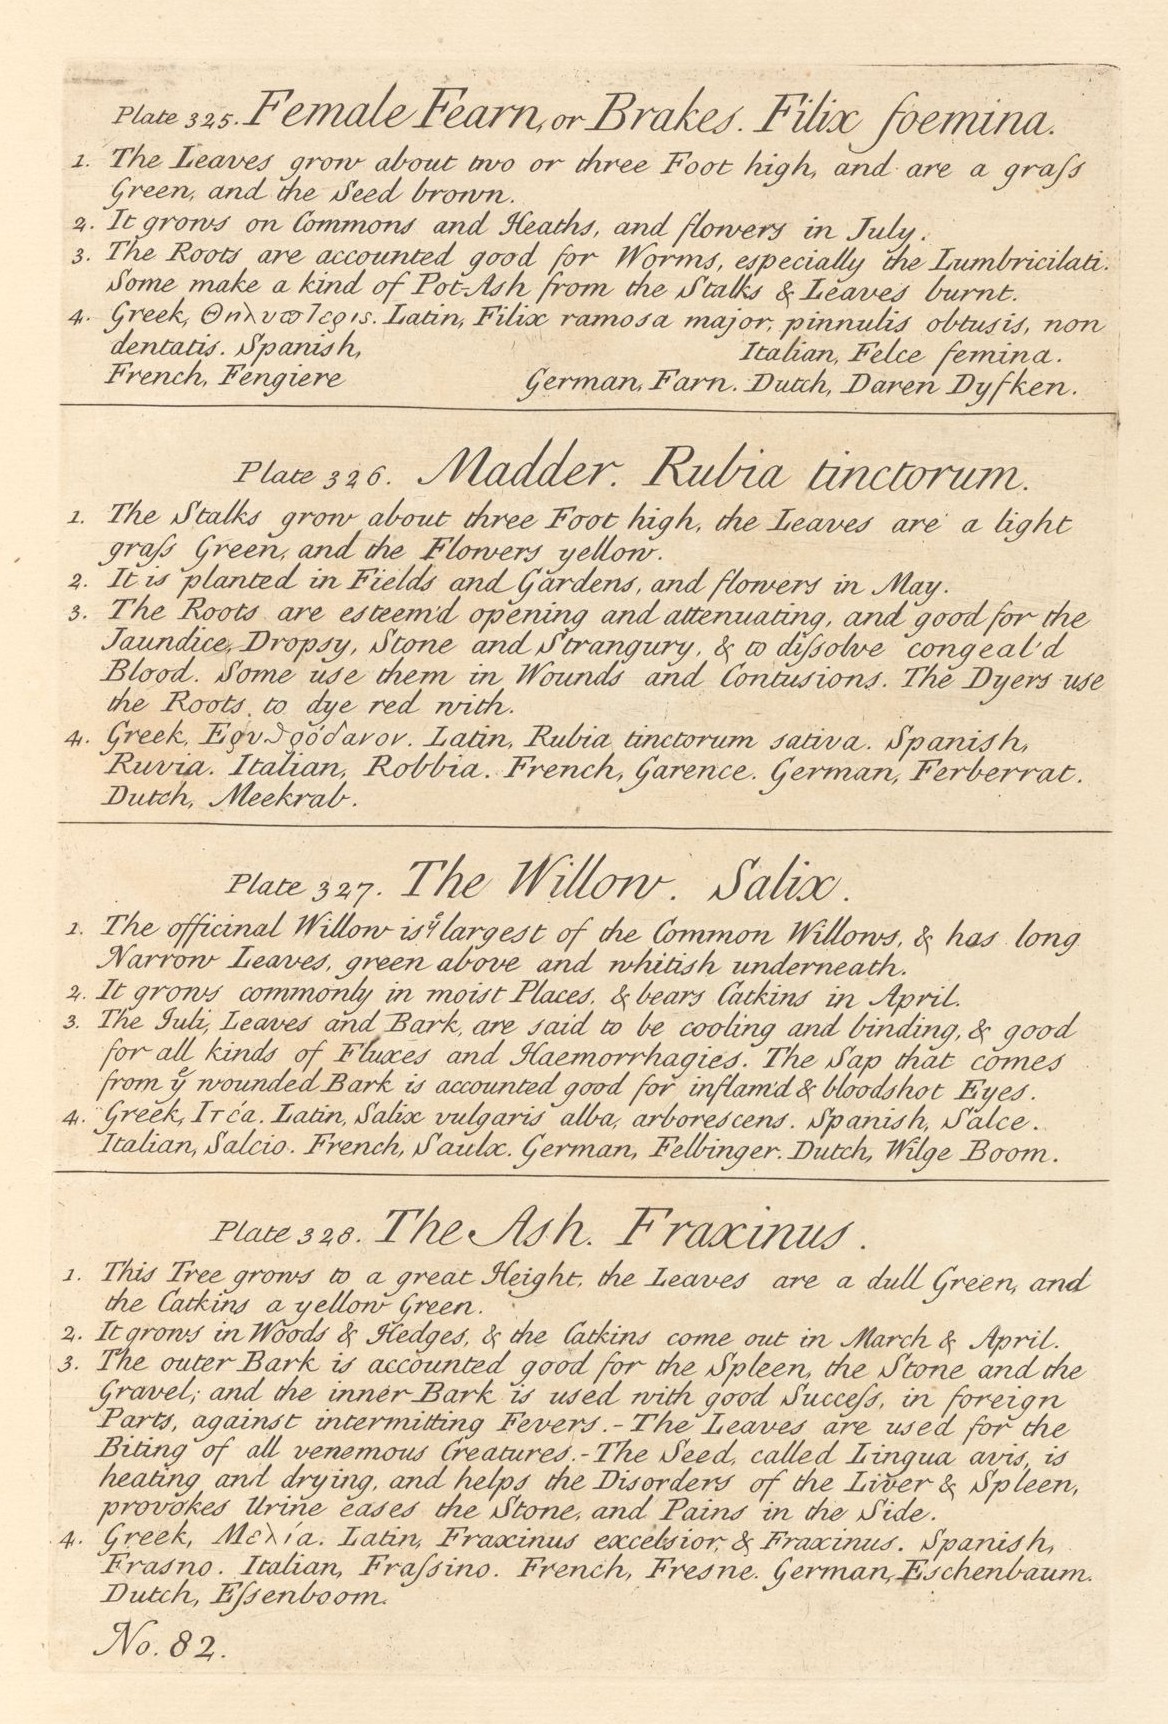 Plate 325. Female Fearn, or Brakes. Filix foemina.
1. The Leaves grow about two or three Foot high, and are a graſs
Green, and the Seed brown.
2. It grows on Commons and Heaths, and flowers in July.
3. The Roots are accounted good for Worms, especially the Lumbricilati.
Some make a kind of Pot-Ash from the Stalks & Leaves burnt.
4. Greek, Θηλυϖτερις. Latin, Filix ramosa major, pinnulis obtusis, non
dentatis. Spanish, Italian, Felce femina.
French, Fengiere German, Farn. Dutch, Daren Dyfken.
Plate 326. Madder. Rubia tinctorum.
1. The Stalks grow about three Foot high, the Leaves are a light
graſs Green, and the Flowers yellow.
2. It is planted in Fields and Gardens, and flowers in May.
3. The Roots are esteem'd opening and attenuating, and good for the
Jaundice, Dropsy, Stone and Strangury, & to diſsolve congeal'd
Blood. Some use them in Wounds and Contusions. The Dyers use
the Roots to dye red with.
4. Greek, Ερυϑρόδανον. Latin, Rubia tinctorum sativa. Spanish,
Ruvia. Italian, Robbia. French, Garence. German, Ferberrat.
Dutch, Meekrab.
Plate 327. The Willow. Salix.
1. The officinal Willow is yͤ largest of the Common Willows, & has long
Narrow Leaves, green above and whitish underneath.
2. It grows commonly in moist Places, & bears Catkins in April.
3. The Juli, Leaves and Bark, are said to be cooling and binding, & good
for all kinds of Fluxes and Haemorrhagies. The Sap that comes
from yͤ wounded Bark is accounted good for inflam'd & bloodshot Eyes.
4. Greek, Ιτέα. Latin, Salix vulgaris alba, arborescens. Spanish, Salce.
Italian, Salcio. French, Saulx. German, Felbinger. Dutch, Wilge Boom.
Plate 328. The Ash. Fraxinus.
1. This Tree grows to a great Height, the Leaves are a dull Green, and
the Catkins a yellow Green.
2. It grows in Woods & Hedges, & the Catkins come out in March & April.
3. The outer Bark is accounted good for the Spleen, the Stone and the
Gravel; and the inner Bark is used with good Succeſs, in foreign
Parts, against intermitting Fevers. - The Leaves are used for the
Biting of all venemous Creatures. - The Seed, called Lingua avis, is
heating and drying, and helps the Disorders of the Liver & Spleen,
provokes Urine eases the Stone, and Pains in the Side.
4. Greek, Μελία. Latin, Fraxinus excelsior, & Fraxinus. Spanish,
Frasno. Italian, Fraſsino. French, Fresne. German, Eschenbaum.
Dutch, Eſsenboom.
No. 82.